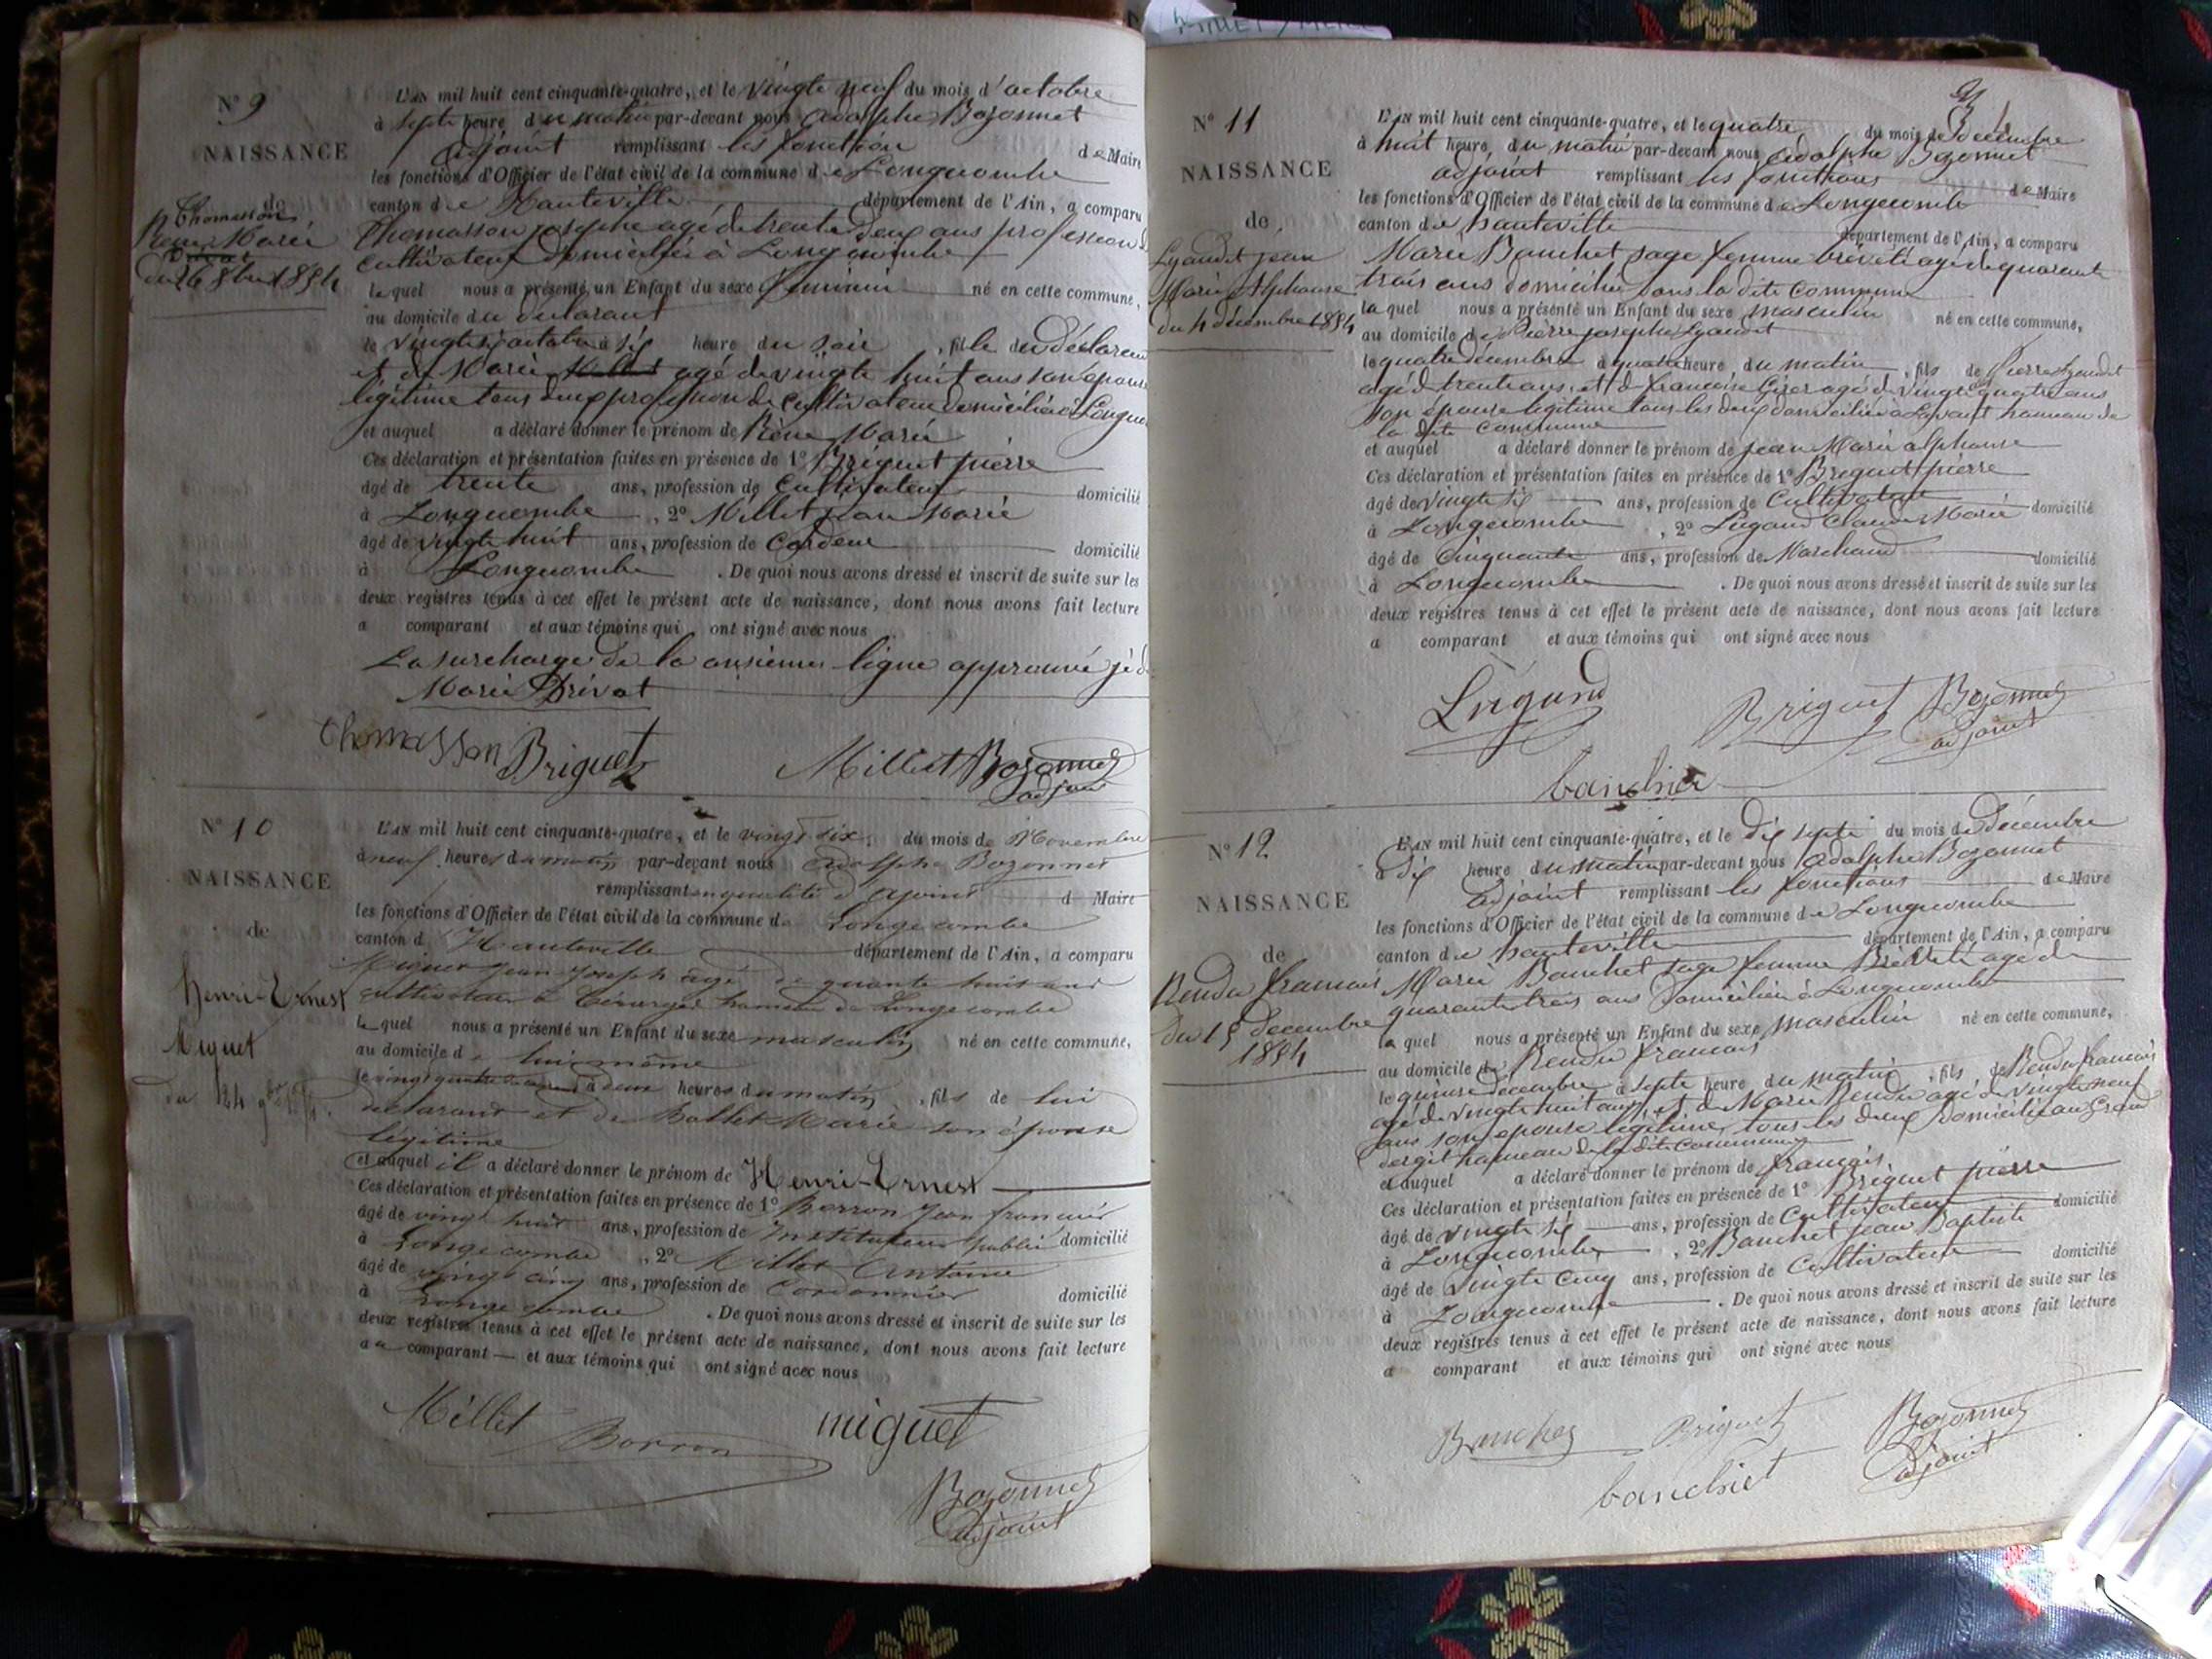 N° 9
NAISSANCE
de
Thomasson
Reine Marie
du 26 8bre 1854
L'AN mil huit cent cinquante-quatre, et le vingte neuf du mois d'octobre
à septe heure du matin par-devant nous Adolphe Bozonnet
adjoint remplissant les fonction de Maire
les fonctions d'Officier de l'état civil de la commune de Longecombe
canton de Hauteville département de l'Ain, a comparu
Thomasson josephe agé de trente deux ans profession de
cultivateur domicilié à Longecombe
lequel nous a présenté un Enfant du sexe feminin né en cette commune,
au domicile du declarant
le vingte six octobre à six heure du soir, fille du déclarent
et de Marie agé de vingte huit ans son épouse
légitime tous deux profession de cultivateur domicilié à Longe
et auquel a déclaré donner le prénom de Reine Marie
Ces déclaration et présentation faites en présence de 1° Briguet pierre
âgé de trente ans, profession de Cultivateur domicilié
à Longecombe, 2° Millet jean Marie
âgé de vingte huit ans, profession de Cardeur domicilié
à Longecombe. De quoi nous avons dressé et inscrit de suite sur les
deux registres tenus à cet effet le présent acte de naissance, dont nous avons fait lecture
a comparant et aux témoins qui ont signé avec nous
La surcharge de la onsieme ligne approuvé je d
Marie Drivat
thomasson Briguet Millet Bozonnet
adjoint
N° 10
NAISSANCE
de
Henri-Ernest
Miguet
du 24 9bre 1854.
L'AN mil huit cent cinquante-quatre, et le vingt six du mois de Novembre
à neuf heures du matin par-devant nous Adolphe Bozonnet
remplissant en qualité d'ajoint d Maire
les fonctions d'Officier de l'état civil de la commune de Longecombe
canton d Hauteville département de l'Ain, a comparu
Miguet Jean Joseph âgé de quante huit ans
cultivateur à hameau de Longecombe
lequel nous a présenté un Enfant du sexe masculin né en cette commune,
au domicile de lui même
le vingt quatre du courant à deux heures du matin, fils de lui
declarant et de Ballet Marie son épouse
légitime
et auquel il a déclaré donner le prénom de Henri-Ernest
Ces déclaration et présentation faites en présence de 1° Borron Jean francois
âgé de vingt huit ans, profession de Instituteur public domicilié
à Longecombe, 2° Millet Antoine
âgé de vingt cinq ans, profession de Cordonnier domicilié
à Longecombe. De quoi nous avons dressé et inscrit de suite sur les
deux registres tenus à cet effet le présent acte de naissance, dont nous avons fait lecture
au comparant et aux témoins qui ont signé avec nous
Millet Borron miguet
Bozonnet
adjoint
N° 11
NAISSANCE
de
Lyaudet jean
Marie Alphonse
du 4 décembre 1854
L'AN mil huit cent cinquante-quatre, et le quatre du mois de Décembre
à huit heure du matin par-devant nous Adolphe Bozonnet
adjoint remplissant les fonctions de Maire
les fonctions d'Officier de l'état civil de la commune de Longecombe
canton de hauteville département de l'Ain, a comparu
Marie Banchet sage femme breveté agé de quarante
trois ans domicilié dans la dite commune
laquel nous a présenté un Enfant du sexe masculin né en cette commune,
au domicile de Pierre josephe Lyaudet
le quatre decembre à quatre heure du matin, fils de Pierre Lyaudet
agé de trente ans, et de francoise agé de vingte quatre ans
son épouse legitime tous les deux domicilié à hameau de
la dite commune
et auquel a déclaré donner le prénom de jean Marie alphonse
Ces déclaration et présentation faites en présence de 1° Breguet pierre
âgé de vingte six ans, profession de Cultivateur domicilié
à Longecombe, 2° Lugand Claude Marie
âgé de Cinquante ans, profession de Marchand domicilié
à Longecombe. De quoi nous avons dressé et inscrit de suite sur les
deux registres tenus à cet effet le présent acte de naissance, dont nous avons fait lecture
a comparant et aux témoins qui ont signé avec nous
Lugand Briguet Bozonnet
adjoint
banchet
N° 12
NAISSANCE
de
Rendu francois
du 15 decembre
1854
L'AN mil huit cent cinquante-quatre, et le dix septe du mois de Décembre
à dix heure du matin par-devant nous Adolphe Bozonnet
adjoint remplissant les fonctions de Maire
les fonctions d'Officier de l'état civil de la commune de Longecombe
canton de hauteville département de l'Ain, a comparu
Marie Banchet sage femme Breveté agé de
quarante trois ans domicilié à Longecombe
laquel nous a présenté un Enfant du sexe masculin né en cette commune,
au domicile de Rendu francois
le quinze décembre à septe heure du matin, fils de Rendu francois
agé de vingte huit ans, et de Marie Rendu agé de vingte neuf
ans son epouse légitime, tous les deux domicilié au Grand
hameau de la dite commune
et auquel a déclaré donner le prénom de francois
Ces déclaration et présentation faites en présence de 1° Briguet pierre
âgé de vingte six ans, profession de Cultivateur domicilié
à Longecombe, 2° Banchet jean Baptiste
âgé de vingte cinq ans, profession de Cultivateur domicilié
à Longecombe. De quoi nous avons dressé et inscrit de suite sur les
deux registres tenus à cet effet le présent acte de naissance, dont nous avons fait lecture
a comparant et aux témoins qui ont signé avec nous
Banchet Briguet Bozonnet
adjoint
banchet